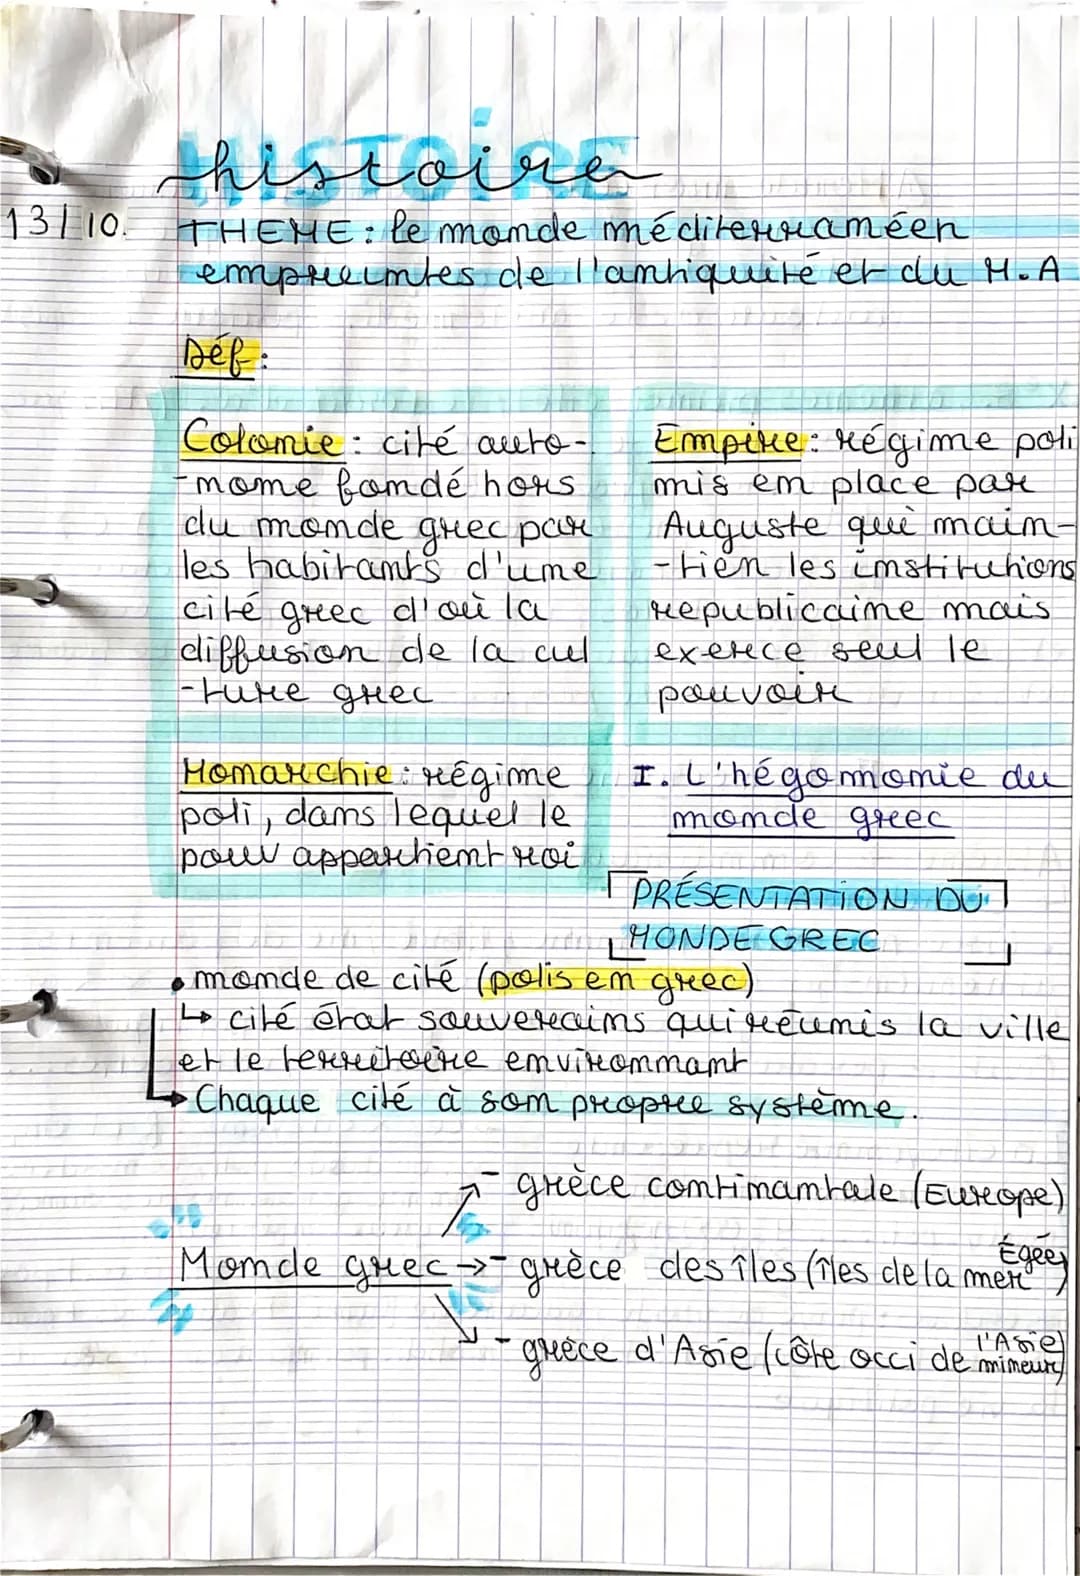 HISTOIRE
histoire
13/10.
THEME : le monde méditerranéen
empreintes de l'antiquité et du M.A
Déf :
Colonie : cité auto-
-nome fondé hors
du monde grec par
les habitants d'une
cité grec d'où la
diffusion de la cul
-ture grec
Empire : régime poli
mis en place par
Auguste qui main-
-tien les institutions
republicaine mais
exerce seul le
pouvoir
Monarchie : régime
poli, dans lequel le
pouv appartient roi
I. L'hégomonie du
monde grec
PRÉSENTATION DU
MONDE GREC
• monde de cité (polis en grec)
↳ cité état souverains qui réunis la ville
et le territoire environnant
→ Chaque cité à son propre système.
- grèce continantale (Europe)
Monde grec → - grèce des îles (îles de la mer Égée)
- grèce d'Asie (côte occi de l'Asie mineure)